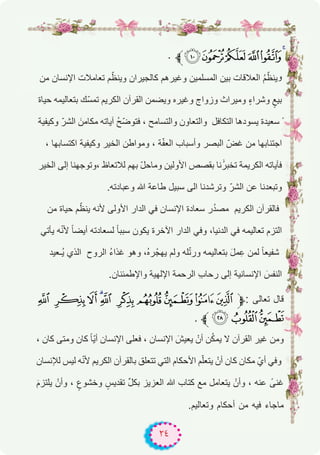 وَاتَّقُوا اللَّهَ لَعَلَّكُمْ تُرْحَمُونَ ﴿١٠﴾ .
وينظّمُ العلاقات بين المسلمين وغيرهم كالجيران وينظّم تعاملات الإنسان من
بيعٍ وشراءٍ وميراث وزواج وغيره ويضمن القرآن الكريم تمسّك بتعاليمه حياة
سعيدة يسودها التكافل والتعاون والتسامح ، فتوضّحُ آياته مكامنَ الشرّ وكيفية
اجتنابها من غضّ البصر وأسباب العفّة ، ومواطن الخير وكيفية اكتسابها ،
فآياته الكريمة تخبرُنا بقصص الأولين وماحلّ بهم للاتعاظ ،وتوجهنا إلى الخير
وتبعدنا عن الشرّ وترشدنا الى سبيل طاعة الله وعبادته.
فالقرآن الكريم مصدُر سعادة الإنسان في الدار الأولى لأنه ينظّم حياة من
التزم تعاليمه في الدنيا، وفي الدار الآخرة يكون سبباً لسعادته أيضاً لأنّه يأتي
شفيعاً لمن عمِلَ بتعاليمه ورتّله ولم يهجُرهُ، وهو غذاءُ الروح الذي يُعيد
النفسَ الإنسانية إلى رحاب الرحمة الإلهية والإطمئنان.
قال تعالى : ﴿ الَّذِينَ آمَنُوا وَتَطْمَئِنُّ قُلُوبُهُم بِذِكْرِ اللَّهِ ۗ أَلَا بِذِكْرِ اللَّهِ
تَطْمَئِنُّ الْقُلُوبُ ﴿٢٨﴾ .
ومن غير القرآن لا يمكُن أنْ يعيشَ الإنسان ، فعلى الإنسان أيّاً كان ومتى كان ،
وفي أيّ مكان كان أنْ يتعلّم الأحكام التي تتعلق بالقرآن الكريم لأنّه ليس للإنسان
غنىً عنه ، وأنْ يتعامل مع كتاب الله العزيز بكلّ تقديسٍ وخشوعٍ ، وأنْ يلتزمَ
ماجاء فيه من أحكام وتعاليم.
٢٤